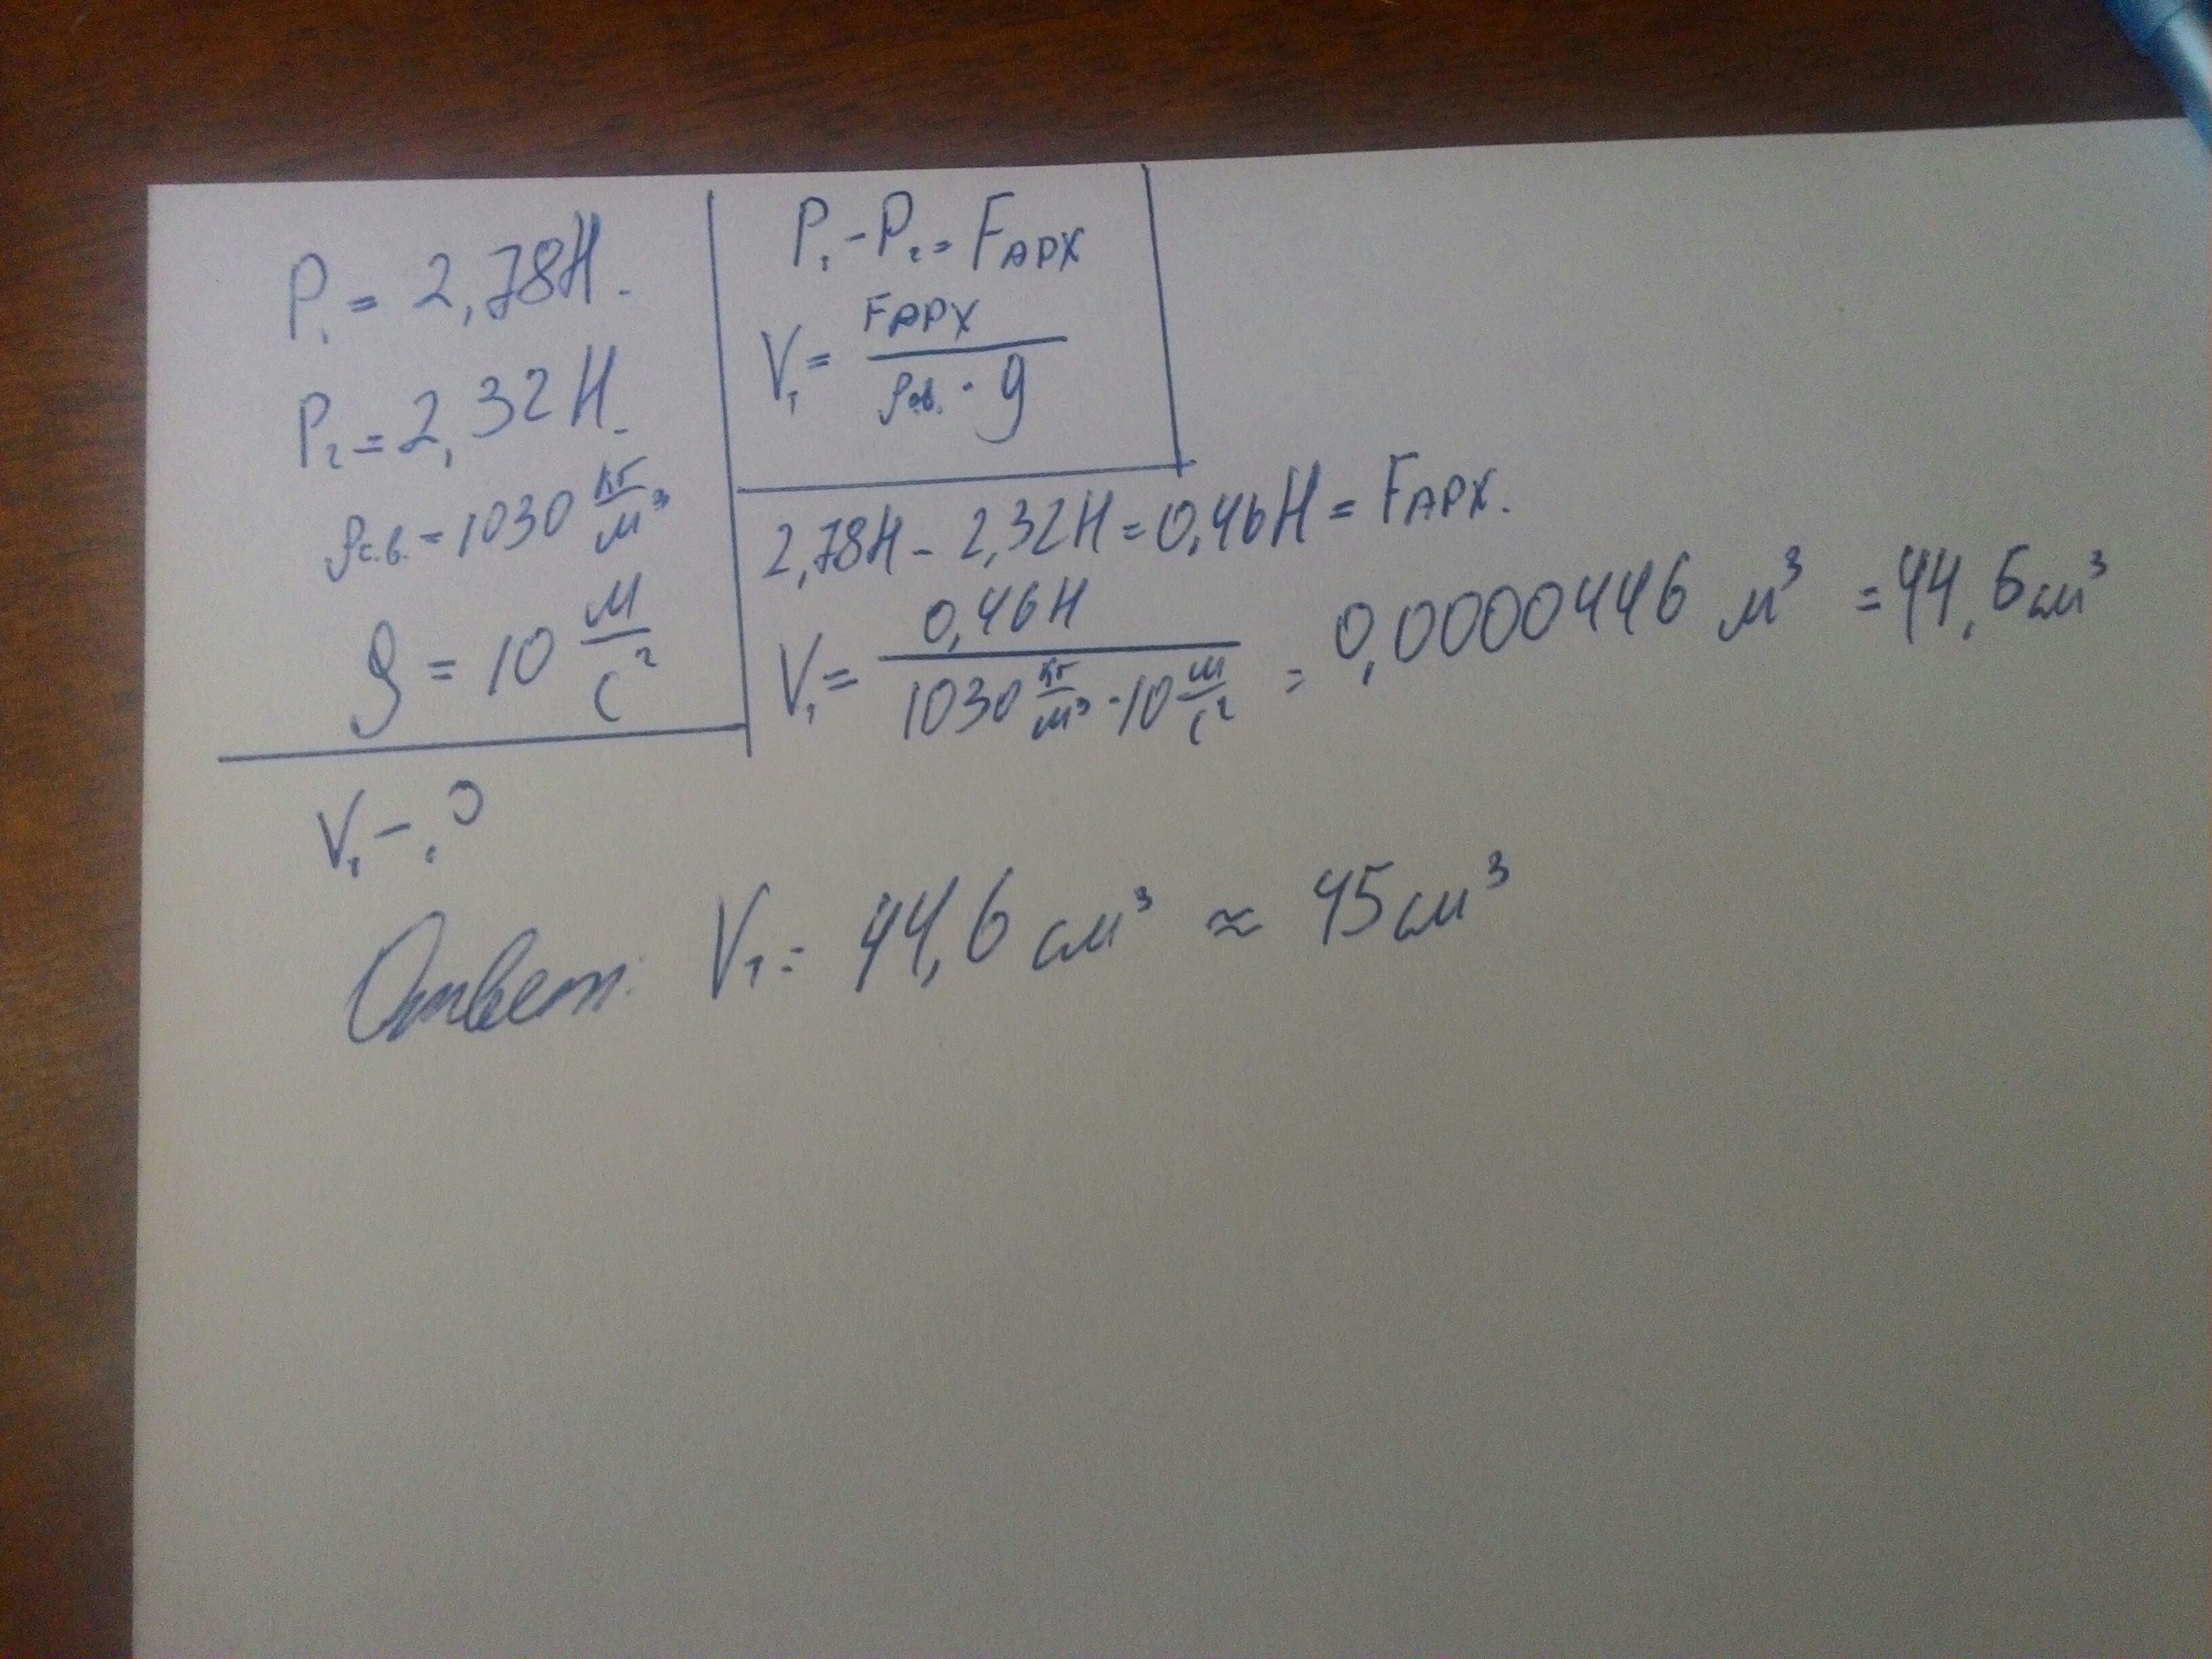 P₁ = 2,78Н.
P₂ = 2,32Н.
ρс.в. = 1030 кг/м³
g = 10 м/с²
V₁ - ?
P₁ - P₂ = FАРХ
V₁ = FАРХ / ρс.в. · g
2,78Н - 2,32Н = 0,46Н = FАРХ.
V₁ = 0,46Н / 1030 кг/м³ · 10 м/с² = 0,0000446 м³ = 44,6 см³
Ответ: V₁ = 44,6 см³ ≈ 45 см³